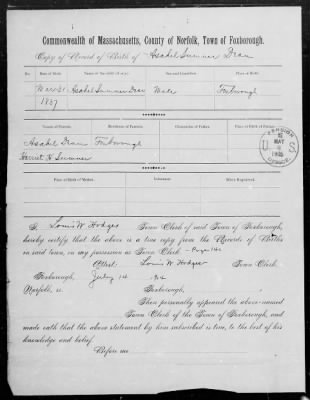 Commonwealth of Massachusetts, County of Norfolk, Town of Foxborough.
Copy of Record of Birth of Asahel Sumner Dean
No. Date of Birth. Name of the Child (if any). Sex and Condition. Place of Birth.
Mar 31 Asahel Sumner Dean Male Foxborough
1837
Names of Parents. Residence of Parents. Occupation of Father. Place of Birth of Father.
Asahel Dean Foxborough
Harriet N Sumner
U.S. PENSION OFFICE
MAY
Place of Birth of Mother. Informant. When Registered.
I, Louis W. Hodges Town Clerk of said Town of Foxborough,
hereby certify that the above is a true copy from the Records of Births
in said town, in my possession as Town Clerk - Page 142
Attest: Louis W. Hodges Town Clerk.
Foxborough, July 14
Norfolk, ss. Foxborough,
Then personally appeared the above-named
Town Clerk of the Town of Foxborough, and
made oath that the above statement by him subscribed is true, to the best of his
knowledge and belief.
Before me